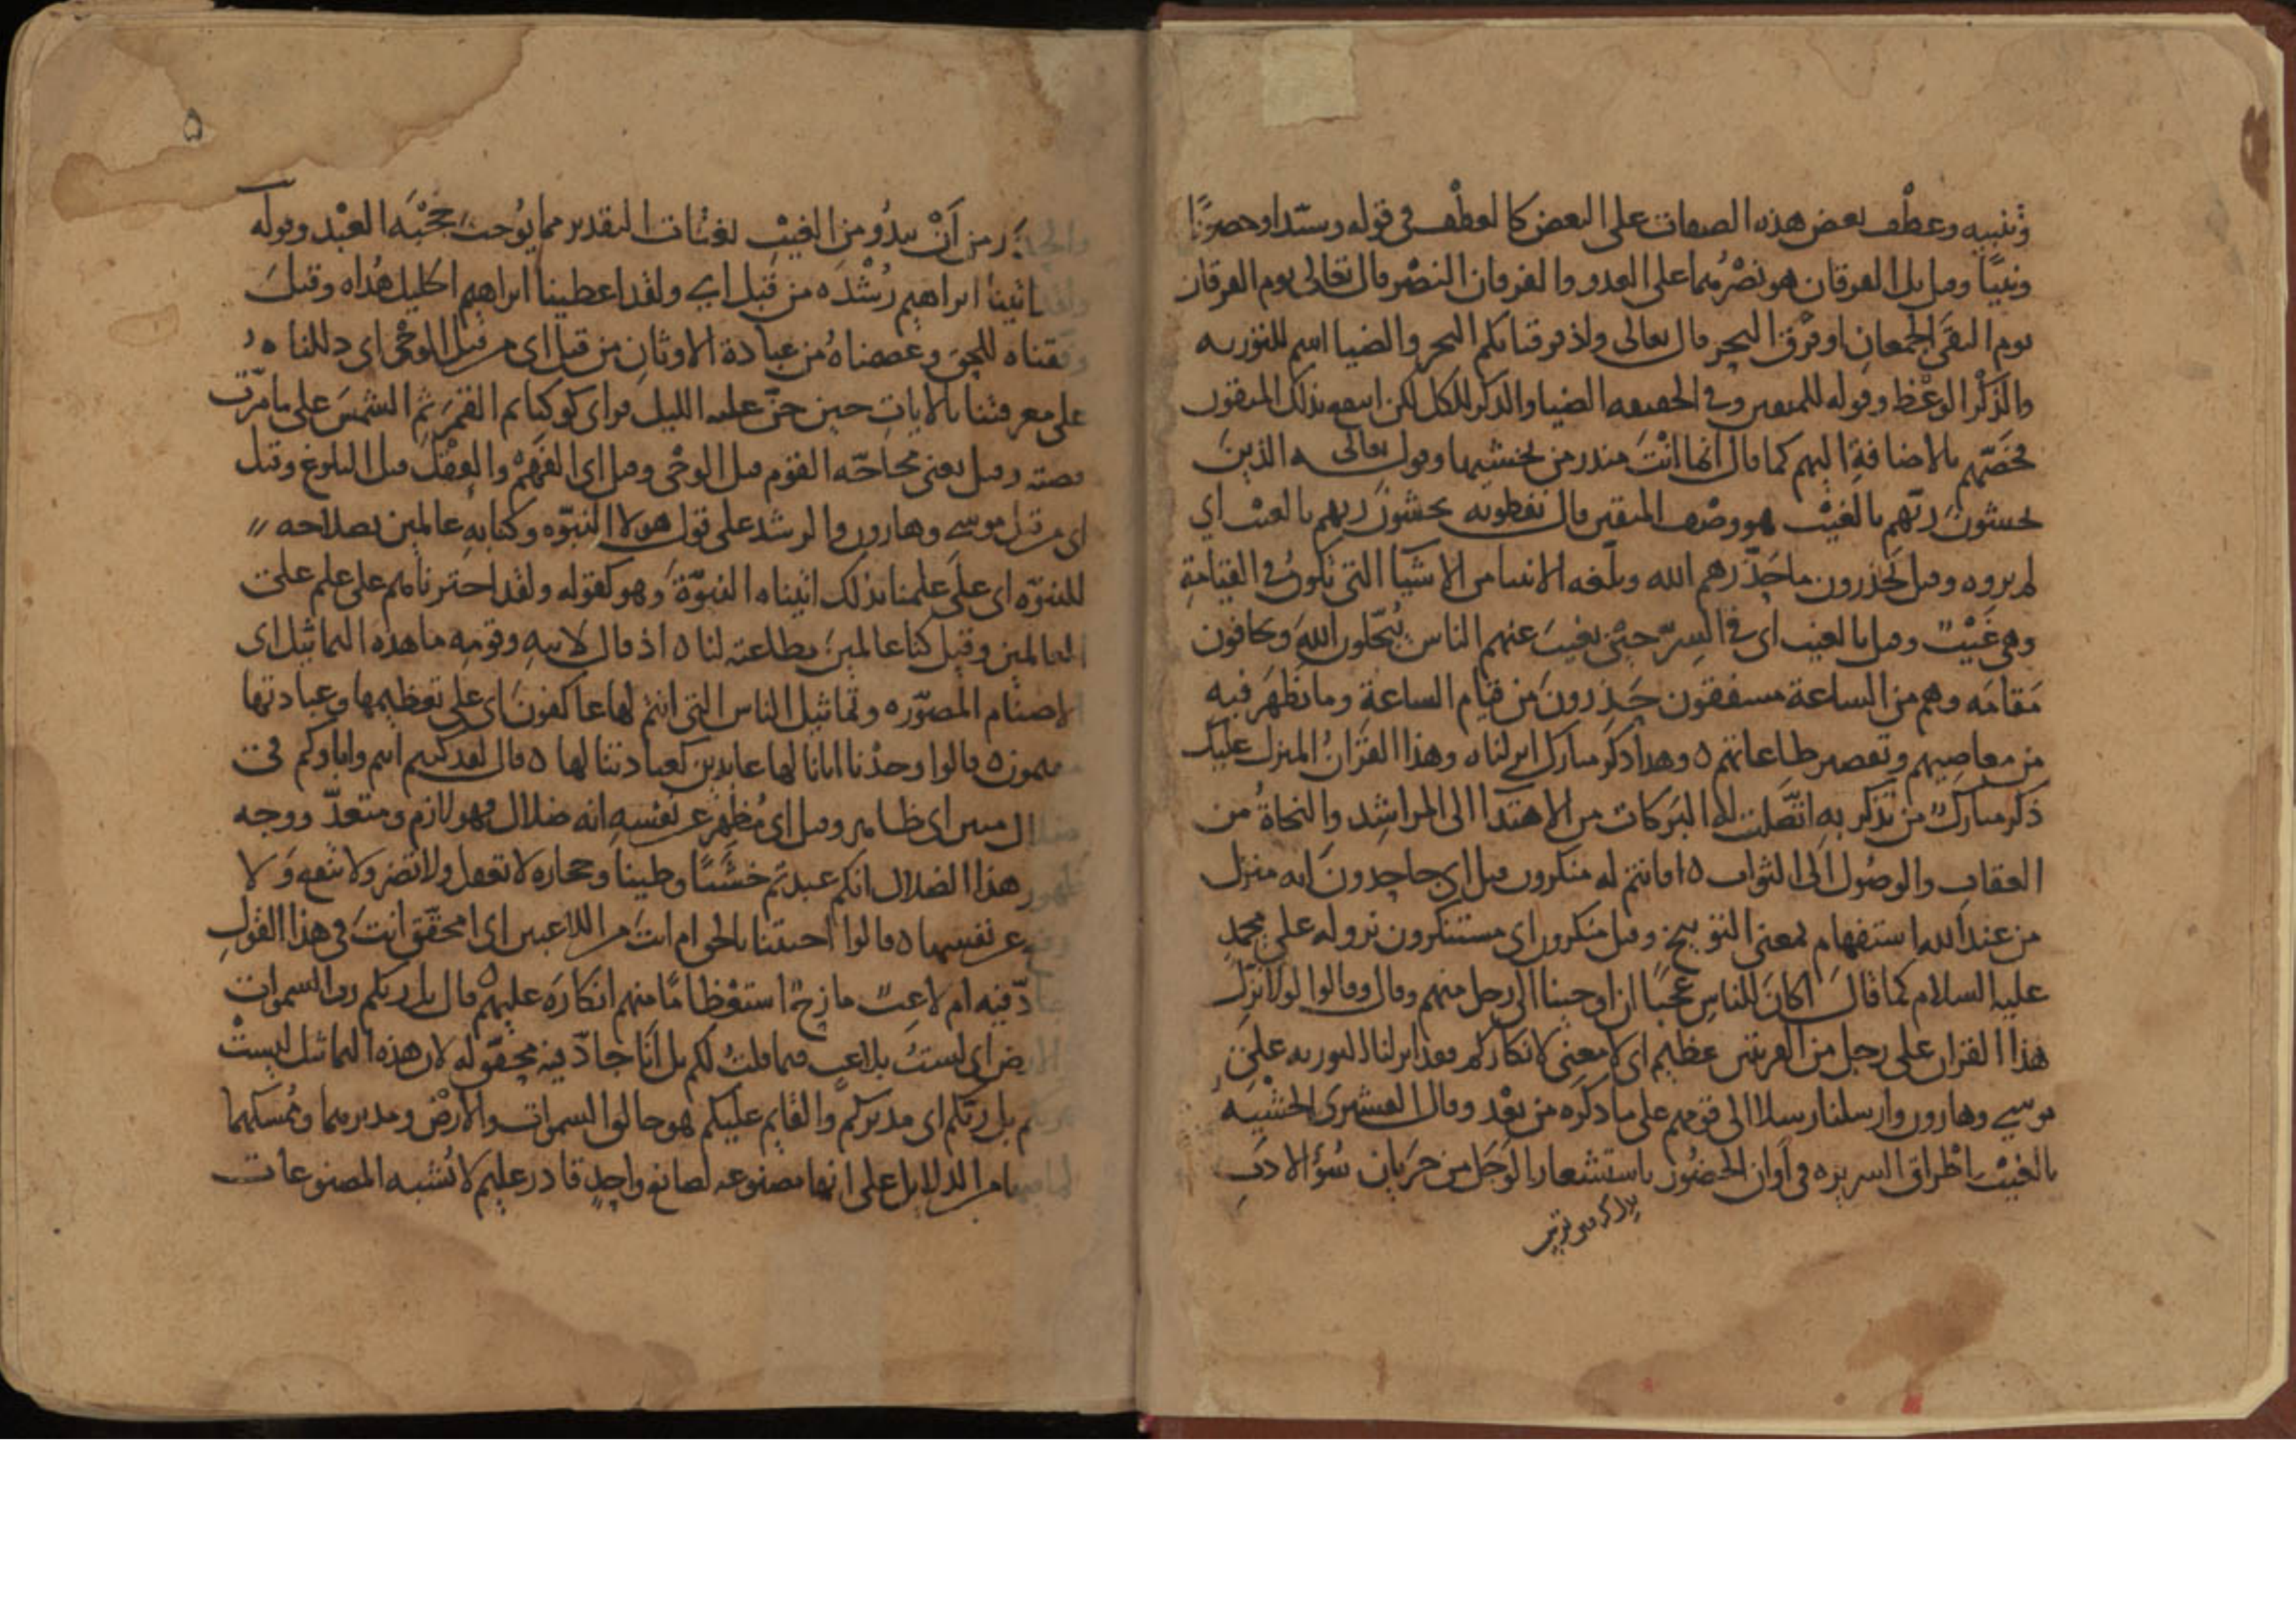 وتنبيه وعطف بعض هذه الصفات على البعض كالعطف في قوله وسيّدا وحصورًا
ونبيًّا وقيل بل الفرقان هو نصرهما على العدو والفرقان النصر قال تعالى يوم الفرقان
يوم التقى الجمعان او فرق البحر قال تعالى واذ فرقنا بكم البحر والضيا اسم للتورية
والذكر الوعظ وقوله للمتقين وفي الحقيقة الضيا والذكر للكل لكن انتفع بذلك المتقون
فخصّهم بالاضافة اليهم كما قال انما انت منذر من يخشيها وقوله تعالى ه الذين
يخشون ربّهم بالغيب هو وصف المتقين قال نفطويه يخشون ربهم بالغيب اي
لم يروه وقيل يحذرون ما حذّرهم الله وبلّغه الانبيا من الاشيا التي تكون في القيامة
وهي غيب وقيل بالغيب اي في السرّ حين يغيب عنهم الناس يُبجّلون الله ويخافون
مقامه وهم من الساعة مشفقون حذرون من قيام الساعة وما يظهر فيه
من معاصيهم وتقصير طاعاتهم ه وهذا ذكر مبارك انزلناه وهذا القرآن المنزل عليك
ذكر مبارك من تذكر به اتّصلت له البركات من الاهتدا الى المراشد والنجاة من
العقاب والوصول الى الثواب ه افانتم له منكرون قيل اي جاحدون انه منزل
من عند الله استفهام بمعنى التوبيخ وقيل منكرون اي مستنكرون نزوله على محمد
عليه السلام كما قال اكان للناس عجبًا ان اوحينا الى رجل منهم وقال وقالوا لولا نزّل
هذا القرآن على رجل من القريتين عظيم اي لا معنى لانكاركم فقد انزلنا التورية على
موسى وهارون وارسلنا رسلا الى قومهم على ما ذكره من بعد وقال القشيري الخشية
بالغيب اطراق السريرة في أوان الحضور باستشعار الوجل من جريان سُوء الادب
٥
والحذر من أن يبدو من الغيب بغتات التقدير مما يوجب حجبة العبد وقوله
ولقد اتينا ابراهيم رشده من قبل اي ولقد اعطينا ابراهيم الخليل هُداه وقبل
وفقناه للحق وعصمناه من عبادة الاوثان من قبل اي من قبل الوحي اي دللناه
على معرفتنا بالايات حين جنّ عليه الليل فراى كوكبا ثم القمر ثم الشمس على ما مرّت
قصته وقيل يعني محاجّة القوم قبل الوحي وقيل اي الفهم والعقل قبل البلوغ وقيل
اي من قبل موسى وهارون والرشد على قول هولا النبوّه وكنا به عالمين بصلاحه
للنبوّه اي على علمنا بذلك اتيناه النبوّة وهو كقوله ولقد اخترناهم على علم على
العالمين وقيل كنا عالمين بطاعته لنا ه اذ قال لابيه وقومه ما هذه التماثيل اي
الاصنام المصوّره وتماثيل الناس التي انتم لها عاكفون اي على تعظيمها وعبادتها
مقيمون ه قالوا وجدنا اباءنا لها عابدين كعبادتنا لها ه قال لقد كنتم انتم واباوكم في
ضلال مبين اي ظاهر وقيل اي مُظهر عن نفسه انه ضلال فهو لازم ومتعدّ ووجه
ظهور هذا الضلال انكم عبدتم خشبًا وطينا وحجارة لا تعقل ولا تضر ولا تنفع ولا
تدفع عن نفسها ه قالوا اجئتنا بالحق ام انت من اللاعبين اي امحقّق انت في هذا القول
جادّ فيه ام لاعب مازح استعظامًا منهم انكاره عليهم ه قال بل ربكم رب السموات
والارض اي لستُ بلاعب فيما قلت لكم بل انا جادّ فيه محقّق له لان هذه التماثيل ليست
بربكم بل ربّكم اي مدبركم والقايم عليكم هو خالق السموات والارض ومدبرهما وممسكهما
لما فيها من الدلايل على انها مصنوعه لصانع واحد قادر عليم لا يُشبه المصنوعات